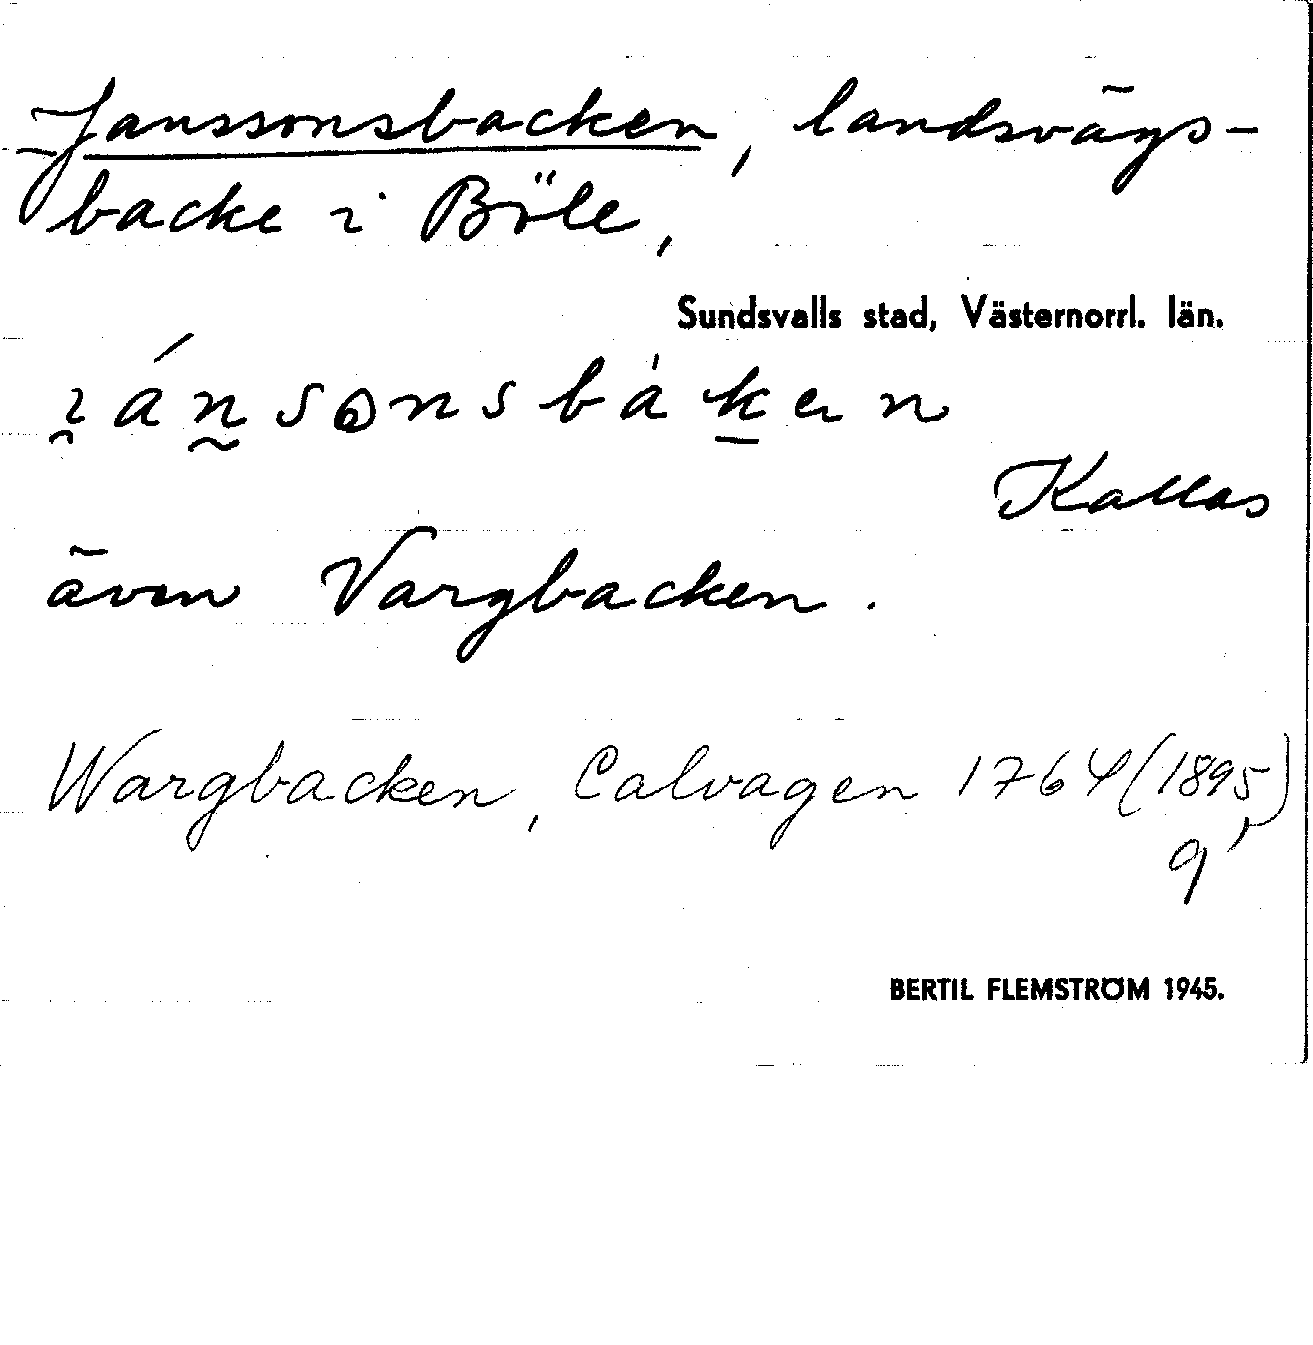 Janssonsbacken, landsvägs-
backe i Böle,
Sundsvalls stad, Västernorrl. län.
i̯ánsonsbàken
Kallas
även Vargbacken.
Wargbacken, Calvagen 1764 (1895)
9
BERTIL FLEMSTRÖM 1945.